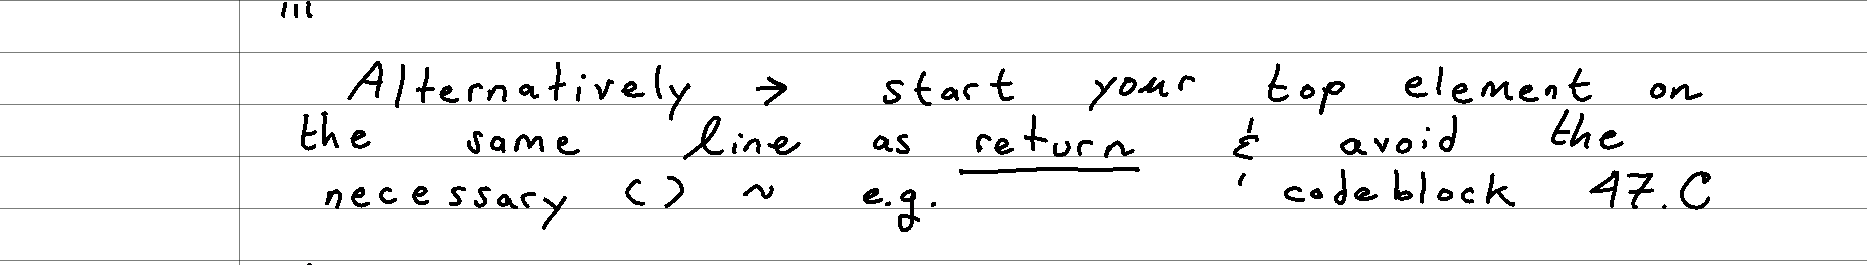 Alternatively → start your top element on
the same line as return & avoid the
necessary () ~ e.g. codeblock 47.C